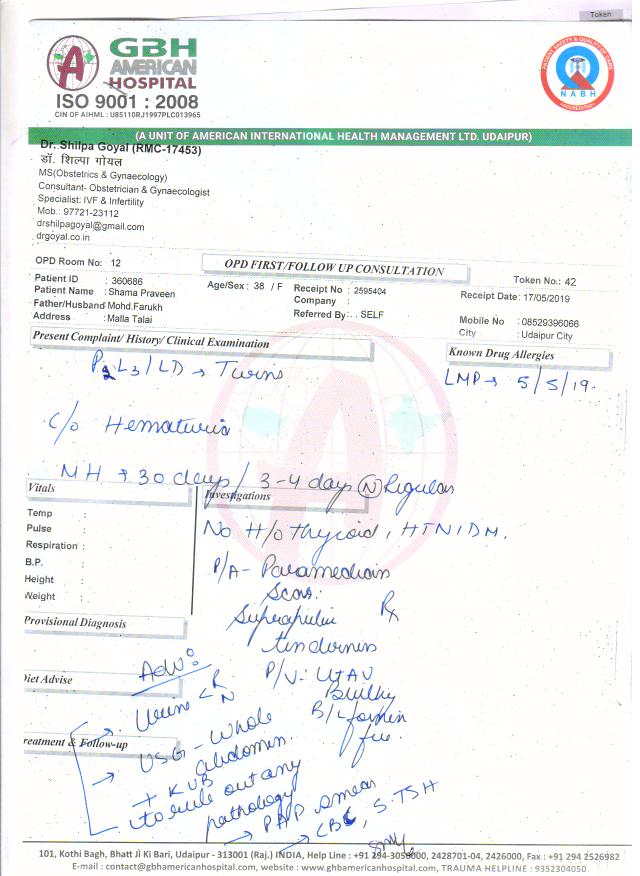 Token
GBH
AMERICAN
HOSPITAL
ISO 9001 : 2008
CIN OF AIHML : U85110RJ1997PLC013965
PATIENT SAFETY & QUALITY OF CARE
NABH
ACCREDITED
(A UNIT OF AMERICAN INTERNATIONAL HEALTH MANAGEMENT LTD. UDAIPUR)
Dr. Shilpa Goyal (RMC-17453)
डॉ. शिल्पा गोयल
MS(Obstetrics & Gynaecology)
Consultant- Obstetrician & Gynaecologist
Specialist: IVF & Infertility
Mob.: 97721-23112
drshilpagoyal@gmail.com
drgoyal.co.in
OPD Room No: 12
OPD FIRST/FOLLOW UP CONSULTATION
Token No.: 42
Patient ID : 360686
Age/Sex : 38 / F
Receipt No : 2595404
Receipt Date: 17/05/2019
Patient Name : Shama Praveen
Company :
Father/Husband : Mohd.Farukh
Referred By: . . SELF
Mobile No : 08529396066
Address : Malla Talai
City : Udaipur City
Present Complaint/ History/ Clinical Examination
Known Drug Allergies
P2L3 / LD → Twins
LMP → 5/5/19.
c/o Hematuria
MH → 30 days / 3-4 days (N) Regular
Vitals
Investigations
Temp :
Pulse :
Respiration :
B.P. :
Height :
Weight :
No H/o Thyroid, HTN/DM.
P/A- Paramedian
Scar.
Suprapubic
tenderness
Rx
Provisional Diagnosis
P/V: UtAV
Bulky
B/L fornix
free.
Diet Advise
Adv:
Urine < R
N
Treatment & Follow-up
→ USG - Whole
abdomen.
+ KUB
to rule out any
pathology
→ PAP smear
→ CBC, S.TSH
101, Kothi Bagh, Bhatt Ji Ki Bari, Udaipur - 313001 (Raj.) INDIA, Help Line : +91 294-3056000, 2428701-04, 2426000, Fax : +91 294 2526982
E-mail : contact@gbhamericanhospital.com, website : www.gbhamericanhospital.com, TRAUMA HELPLINE : 9352304050